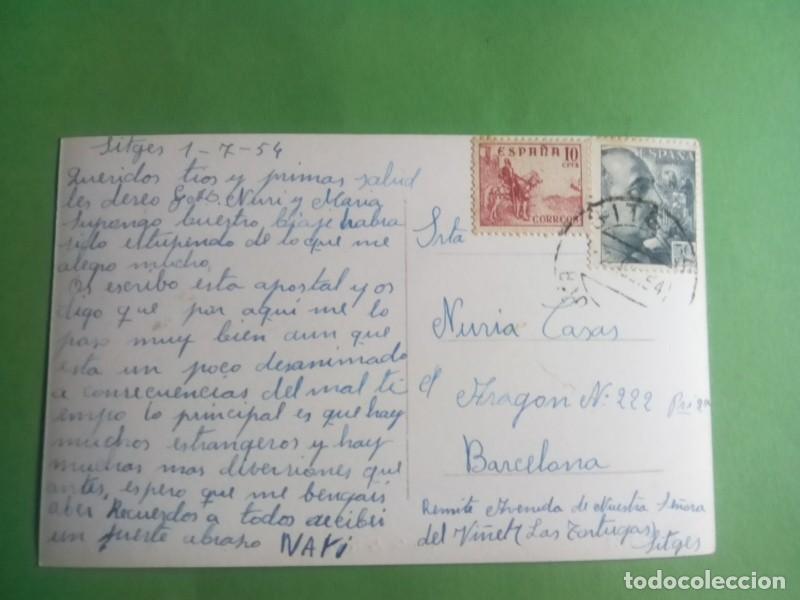 Sitges 1-7-54
Queridos tios y primas salud
les deseo Nuri y Maria
Supongo buestro biaje habra
sido estupendo de lo que me
alegro mucho.
Os escribo esta apostal y os
digo que por aqui me lo
paso muy bien aun que
esta un poco desanimado
a consecuencias del mal ti
empo lo principal es que hay
muchos estrangeros y hay
muchas mas diversiones que
antes, espero que me bengais
aber Recuerdos a todos recibir
un fuerte abrazo NATI
ESPAÑA 10
CTS
CORREOS
ESPAÑA
SITGES
Srta
Nuria Casas
cl
Aragon Nº 222
Barcelona
Remite Avenida de Nuestra Señora
del Viñet (Las Tortugas)
Sitges
todocoleccion
todocoleccion.net